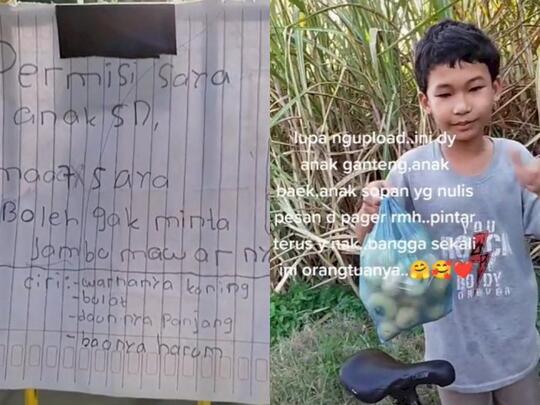 Permisi saya
anak SD,
maaf saya
Boleh gak minta
Jambu mawar ny
ciri:-warnanya kuning
- bulat
- daunnya panjang
- baunya harum
lupa ngupload..ini dy
anak ganteng,anak
baek,anak sopan yg nulis
pesan d pager rmh..pintar
terus y nak..bangga sekali
im orangtuanya..🤗🥰❤️
YOU
ROCK
BODY
FOREVER